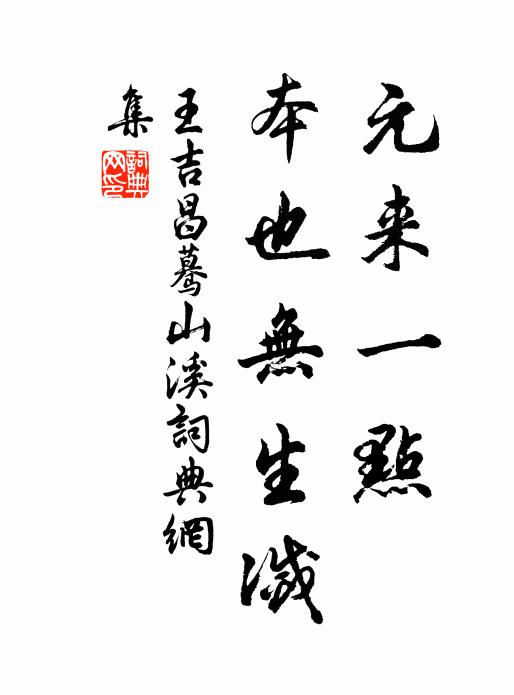 元来一點
本也無生滅
王吉昌驀山溪詞典網
集
詞典
网印